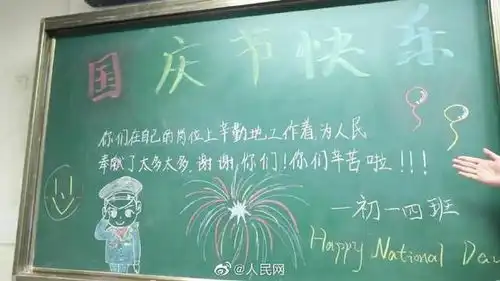 国庆节快乐
你们在自己的岗位上辛勤地工作着,为人民
奉献了太多太多.谢谢,你们!你们辛苦啦!!!
一初一四班
Happy National Day
@人民网